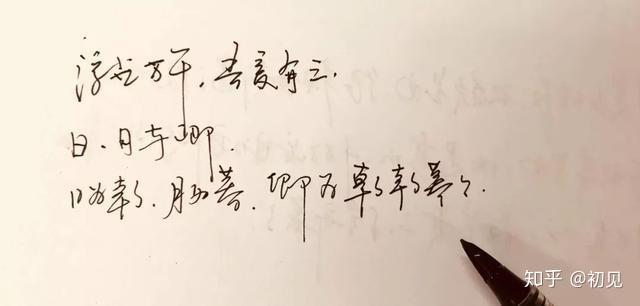 浮世万千,吾爱有三.
日、月与卿.
日为朝,月为暮,卿为朝朝暮暮.
知乎 @初见